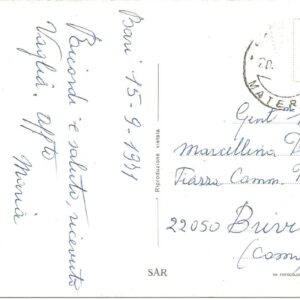 Bari 15-9-1971
Ricordi e saluti, ricevuto
Vaglia. Aff.to
Maria
Riproduzione vietata
SAR
MATER
Gent
Marcellina
Piazza Comm.
22050 Brivi
(Com